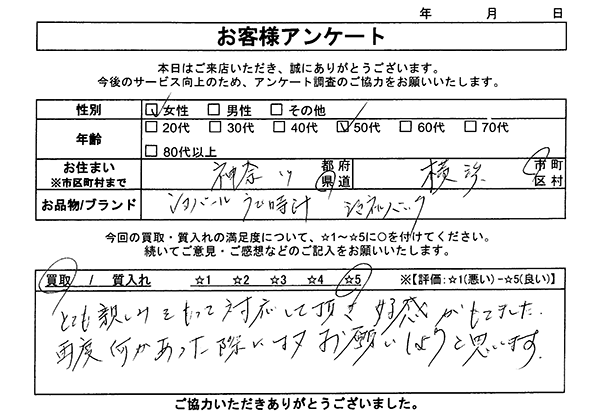 年 月 日
お客様アンケート
本日はご来店いただき、誠にありがとうございます。
今後のサービス向上のため、アンケート調査のご協力をお願いいたします。
性別 ☑女性 □男性 □その他
年齢 □20代 □30代 □40代 ☑50代 □60代 □70代
□80代以上
お住まい 神奈川 都府県道 横浜 市町区村
※市区町村まで
お品物/ブランド ショパール うで時計 シャネルバッグ
今回の買取・質入れの満足度について、☆1～☆5に○を付けてください。
続いてご意見・ご感想などのご記入をお願いいたします。
買取 / 質入れ ☆1 ☆2 ☆3 ☆4 ☆5 ※【評価:☆1(悪い)-☆5(良い)】
とても親しみをもって対応して頂き 好感がもてました.
再度何かあった際にはお願いしようと思います.
ご協力いただきありがとうございました。